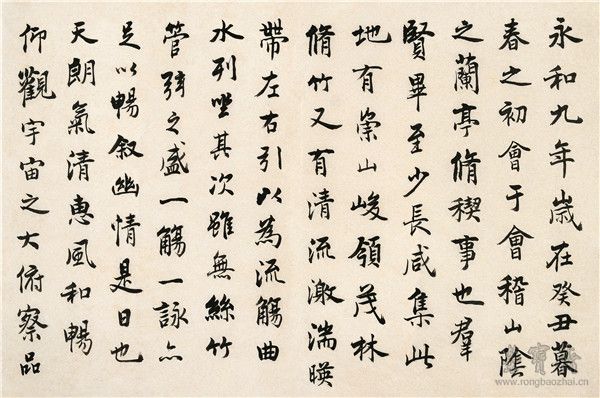 永和九年歲在癸丑暮
春之初會于會稽山陰
之蘭亭脩稧事也羣
賢畢至少長咸集此
地有崇山峻領茂林
脩竹又有清流激湍暎
帶左右引以為流觴曲
水列坐其次雖無絲竹
管弦之盛一觴一詠亦
足以暢叙幽情是日也
天朗氣清惠風和暢
仰觀宇宙之大俯察品
榮寶齋
www.rongbaozhai.cn